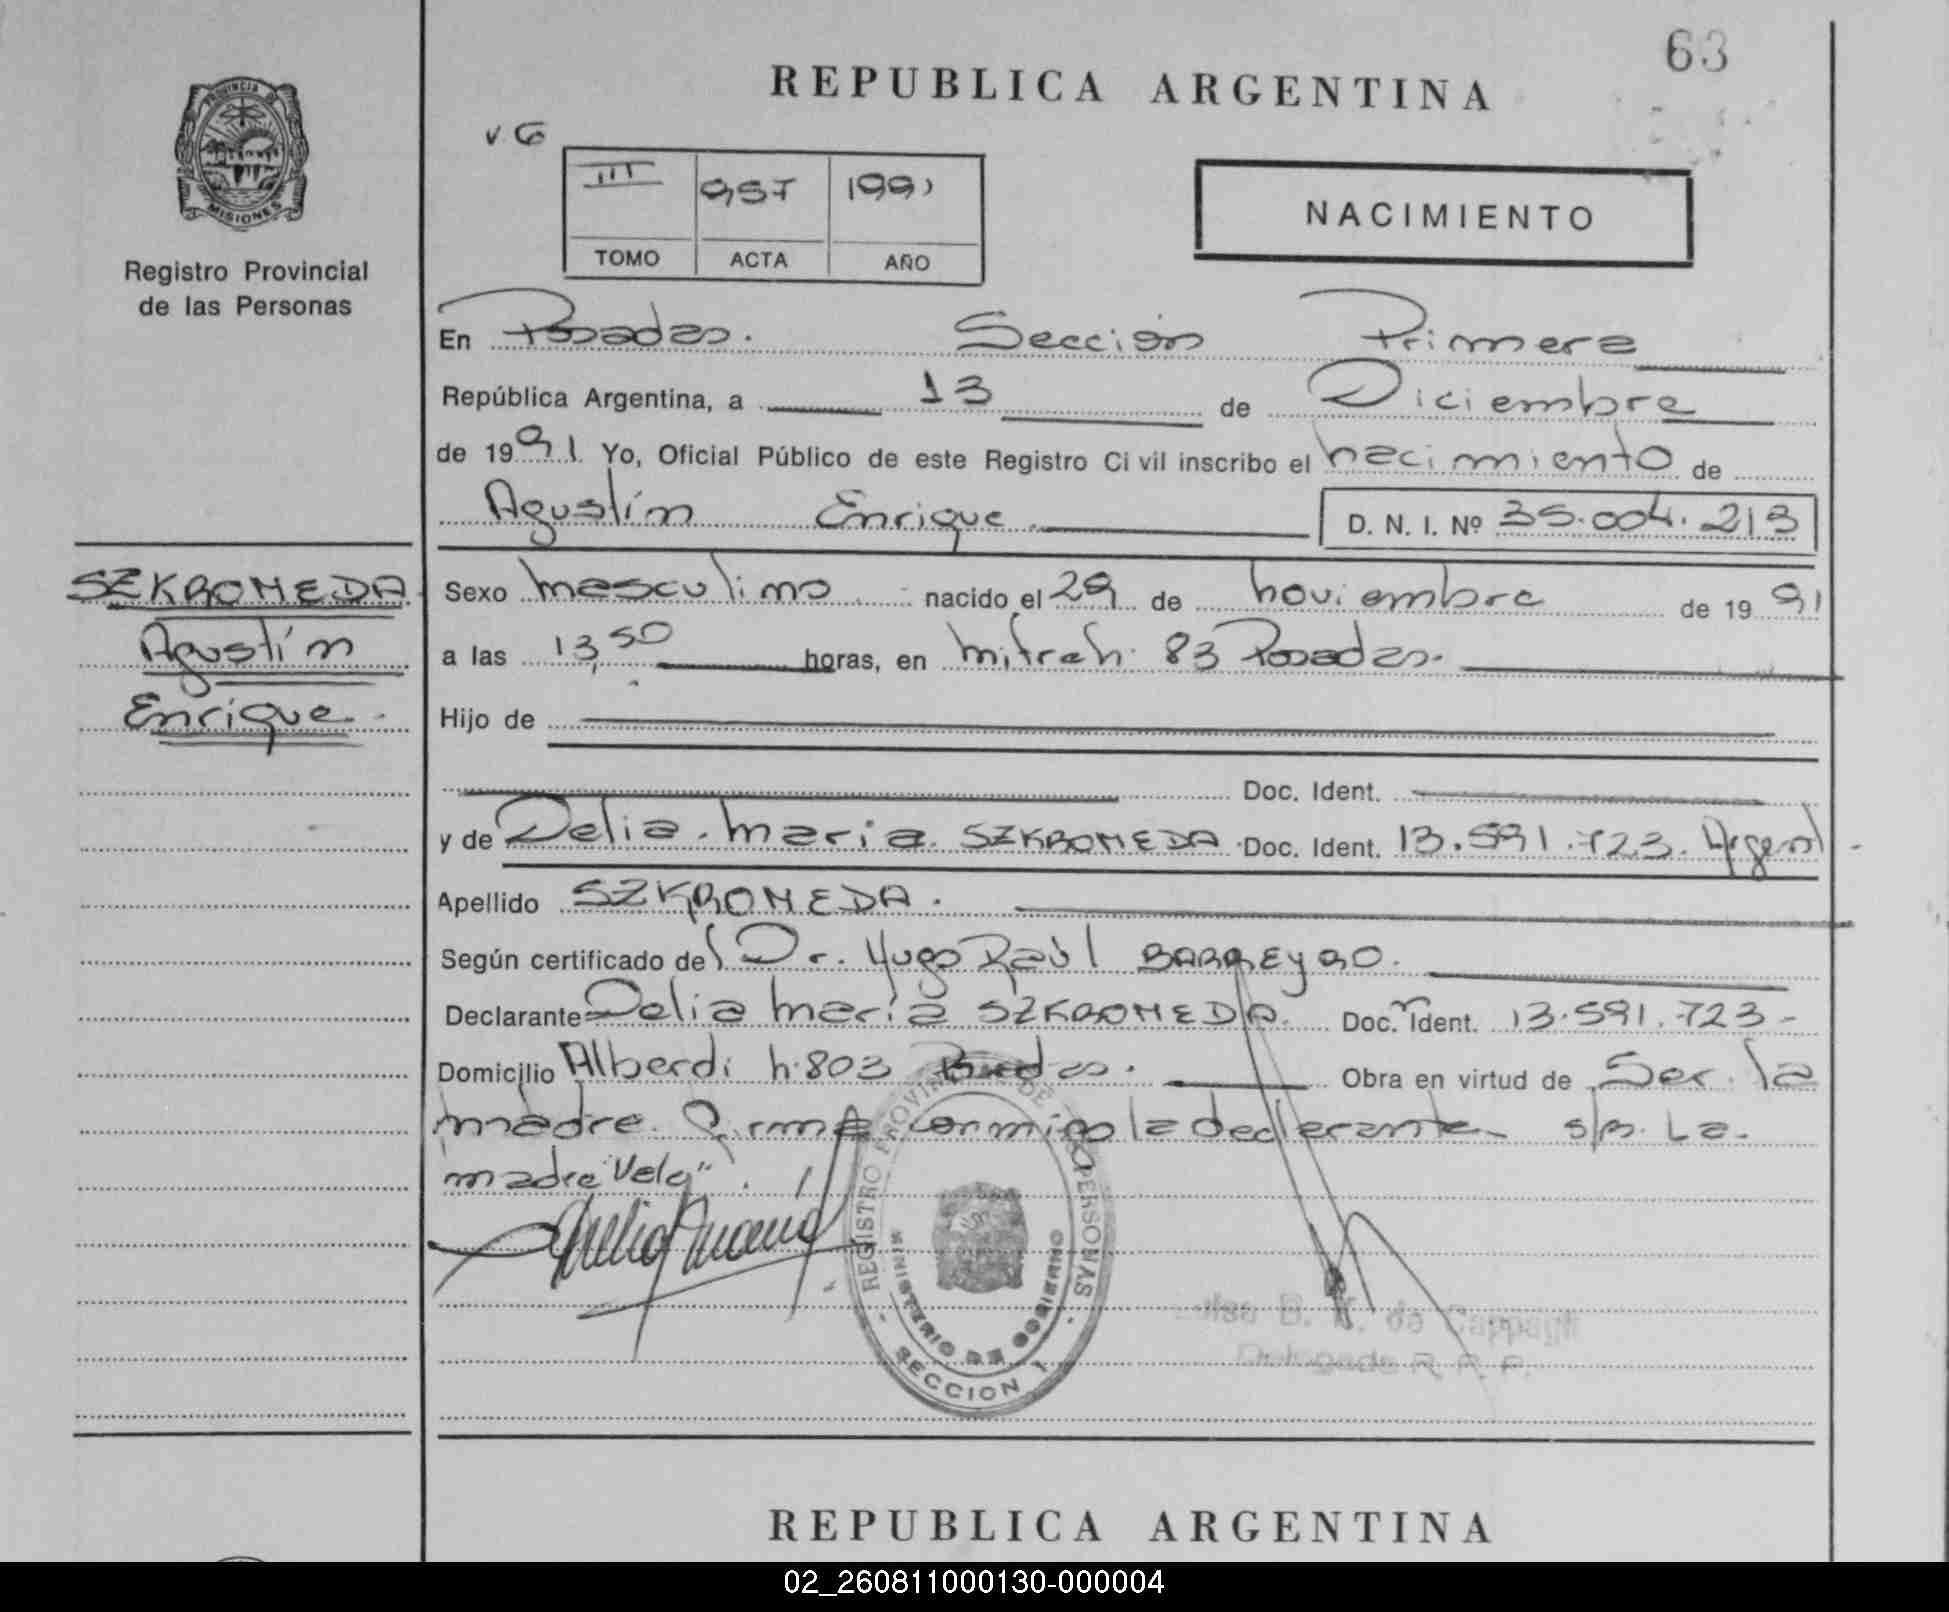 63
REPUBLICA ARGENTINA
PROVINCIA DE
MISIONES
Registro Provincial
de las Personas
III 957 1991
TOMO ACTA AÑO
NACIMIENTO
En Posadas. Sección Primera
República Argentina, a 13 de Diciembre
de 1991 Yo, Oficial Público de este Registro Civil inscribo el nacimiento de
Agustín Enrique D. N. I. Nº 35.004.213
SZKROMEDA
Agustín
Enrique.-
Sexo masculino nacido el 29 de noviembre de 1991
a las 13,50 horas, en mitre n. 83 Posadas.
Hijo de
Doc. Ident.
y de Delia. maria. SZKROMEDA Doc. Ident. 13.591.723. Argent
Apellido SZKROMEDA.
Según certificado del Dr. Hugo Raúl BARREYRO.
Declarante Delia maría SZKROMEDA. Doc. Ident. 13.591.723-
Domicilio Alberdi n. 803 Posadas. Obra en virtud de Ser la
madre. Firma conmigo la declarante s/r. La.
madre "Vele".
REGISTRO PROVINCIAL DE LAS PERSONAS
MINISTERIO DE GOBIERNO
SECCION 1
Luisa B. de Cappagli
Delegada R. P. P.
REPUBLICA ARGENTINA
02_260811000130-000004